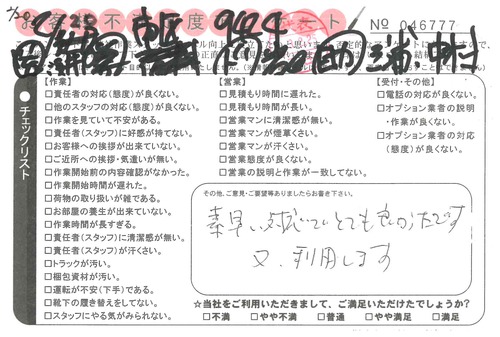 お客様不満足度
№ 046777
チェックリスト
【作業】
□責任者の対応(態度)が良くない。
□他のスタッフの対応(態度)が良くない。
□作業を見ていて不安がある。
□責任者(スタッフ)に好感が持てない。
□お客様への挨拶が出来ていない。
□ご近所への挨拶・気遣いが無い。
□作業開始前の内容確認がなかった。
□作業開始時間が遅れた。
□荷物の取り扱いが雑である。
□お部屋の養生が出来ていない。
□作業時間が長すぎる。
□責任者(スタッフ)に清潔感が無い。
□責任者(スタッフ)が汗くさい。
□トラックが汚い。
□梱包資材が汚い。
□運転が不安(下手)である。
□靴下の履き替えをしてない。
□スタッフにやる気がみられない。
【営業】
□見積もり時間に遅れた。
□見積もり時間が長い。
□営業マンに清潔感が無い。
□営業マンが煙草くさい。
□営業マンが汗くさい。
□営業態度が良くない。
□営業の説明と作業が一致してない。
【受付・その他】
□電話の対応が良くない。
□オプション業者の説明
・作業が良くない。
□オプション業者の対応
(態度)が良くない。
その他、ご意見・ご要望等ありましたらお書き下さい。
素早い対応でとても良かったです
又、利用します
☆当社をご利用いただきまして、ご満足いただけたでしょうか?
□不満 □やや不満 □普通 □やや満足 □満足